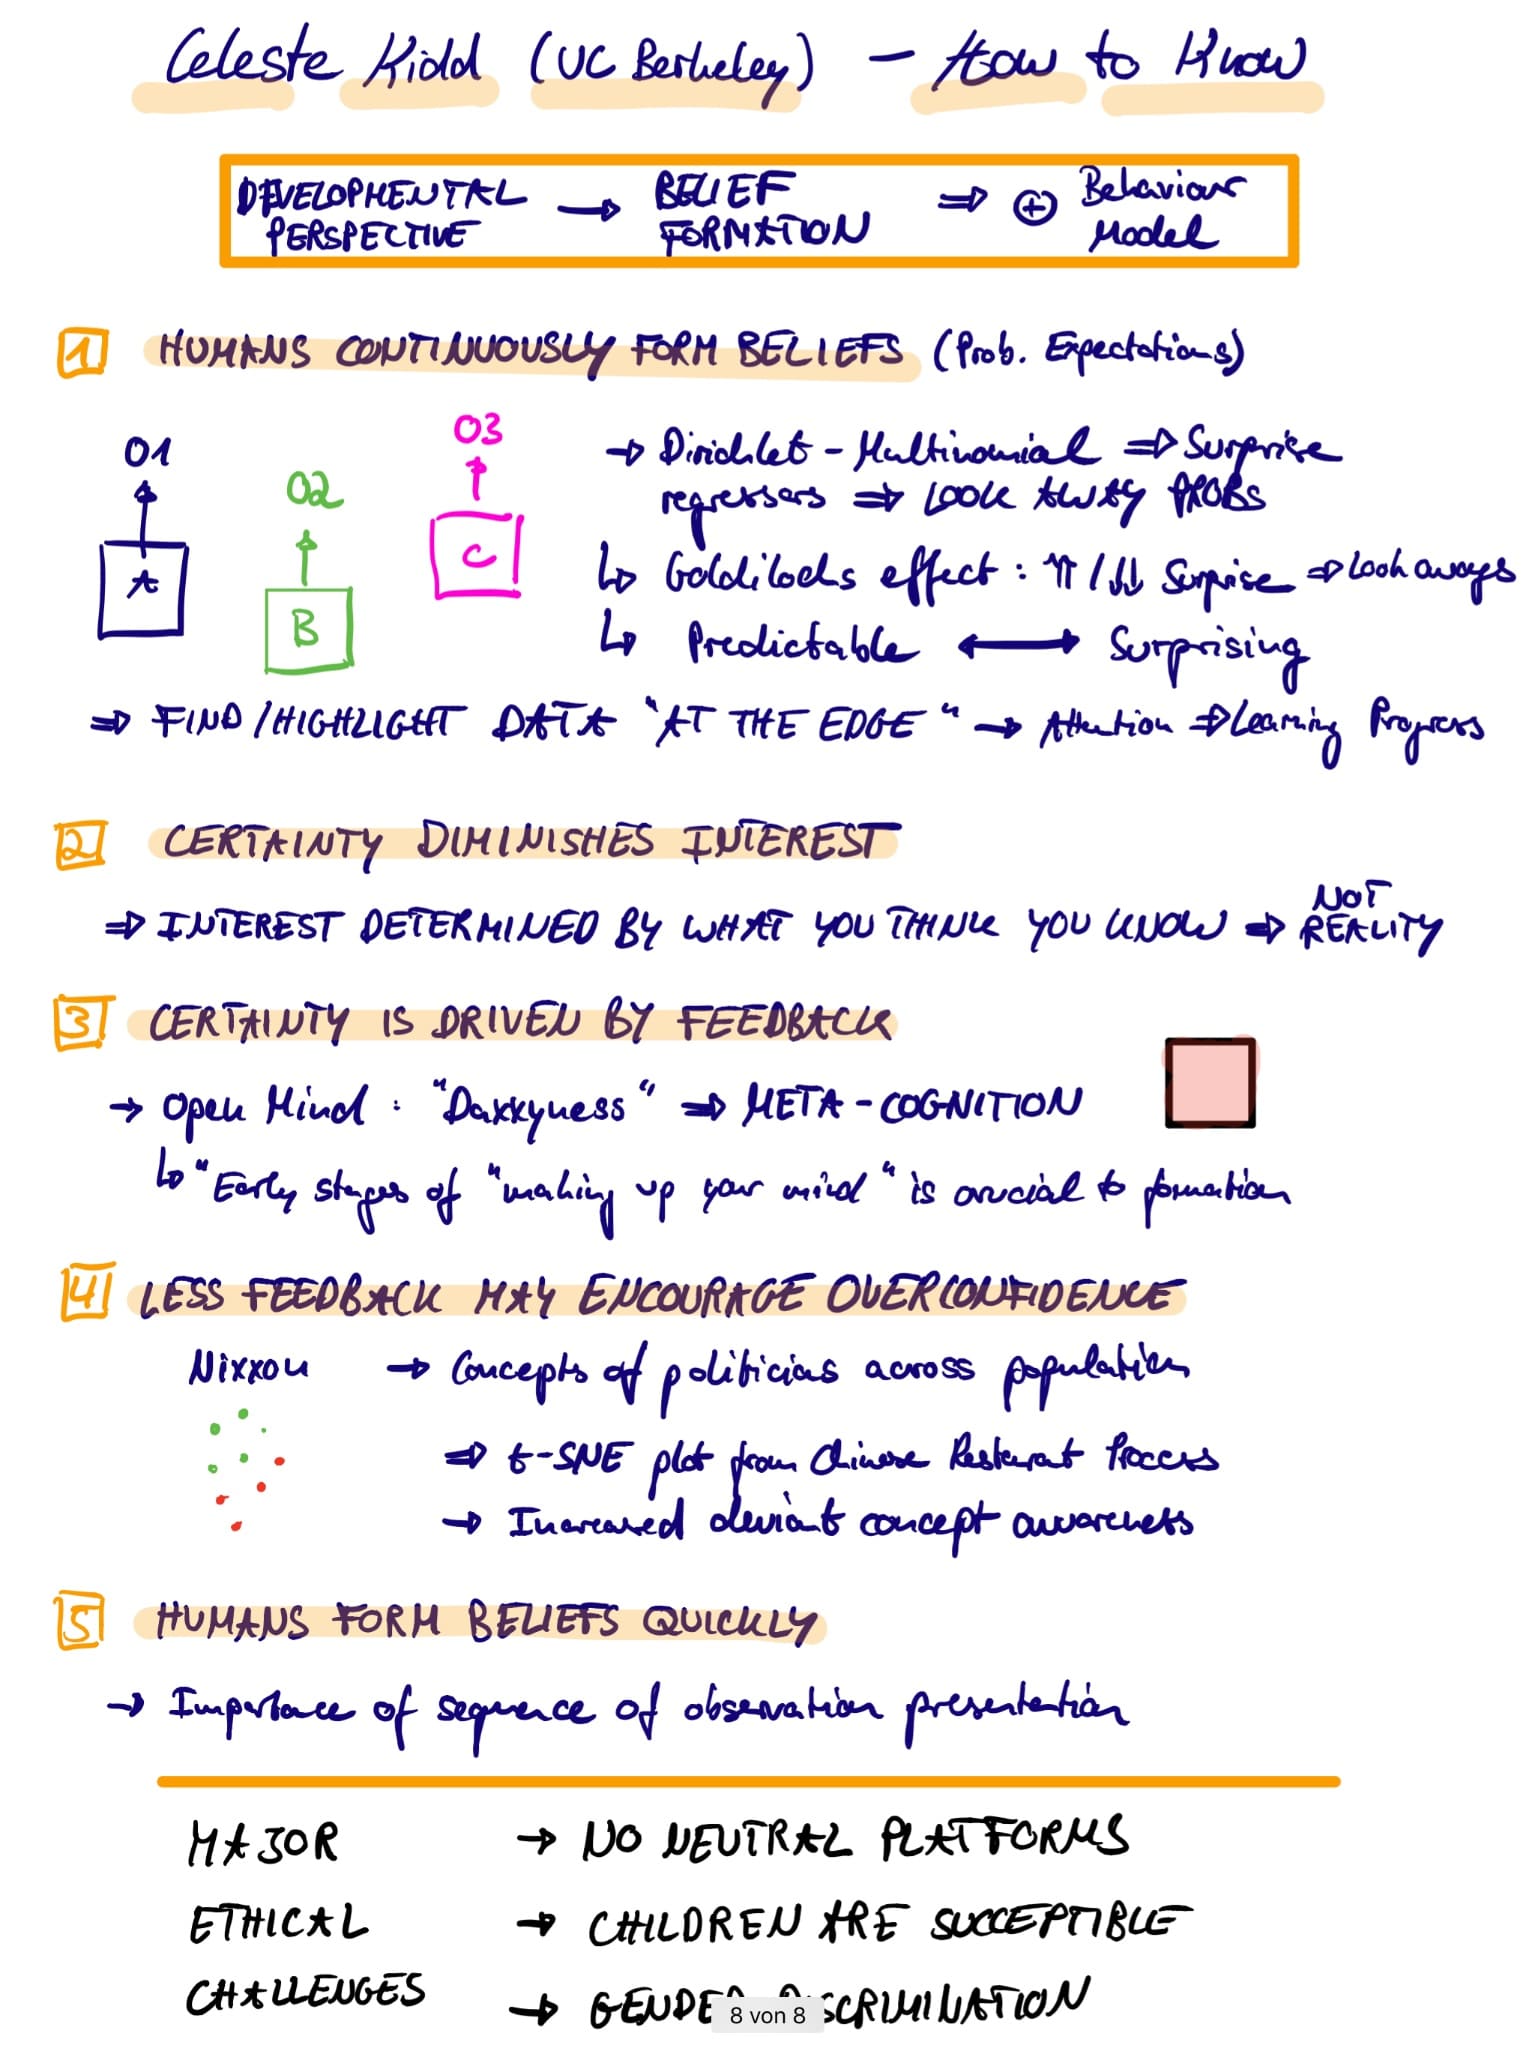 Celeste Kidd (UC Berkeley) - How to Know
DEVELOPMENTAL PERSPECTIVE → BELIEF FORMATION ⇒ ⊕ Behaviour Model
1 HUMANS CONTINUOUSLY FORM BELIEFS (Prob. Expectations)
O1
A
O2
B
O3
C
→ Dirichlet - Multinomial ⇒ Surprise
regressors ⇒ LOOK AWAY PROBS
↳ Goldilocks effect : ⇈ / ⇊ Surprise ⇒ Look aways
↳ Predictable ↔ Surprising
⇒ FIND / HIGHLIGHT DATA "AT THE EDGE" → Attention ⇒ Learning Progress
2 CERTAINTY DIMINISHES INTEREST
⇒ INTEREST DETERMINED BY WHAT YOU THINK YOU KNOW ⇒ NOT REALITY
3 CERTAINTY IS DRIVEN BY FEEDBACK
→ Open Mind : "Daxxyness" ⇒ META - COGNITION
↳ "Early stages of "making up your mind" is crucial to formation
4 LESS FEEDBACK MAY ENCOURAGE OVERCONFIDENCE
Nixxon → Concepts of politicias across population
⇒ t-SNE plot from Chinese Restarant Process
→ Increased deviant concept awareness
5 HUMANS FORM BELIEFS QUICKLY
→ Importance of sequence of observation presentation
MAJOR → NO NEUTRAL PLATFORMS
ETHICAL → CHILDREN ARE SUCCEPTIBLE
CHALLENGES → GENDER DISCRIMINATION
8 von 8